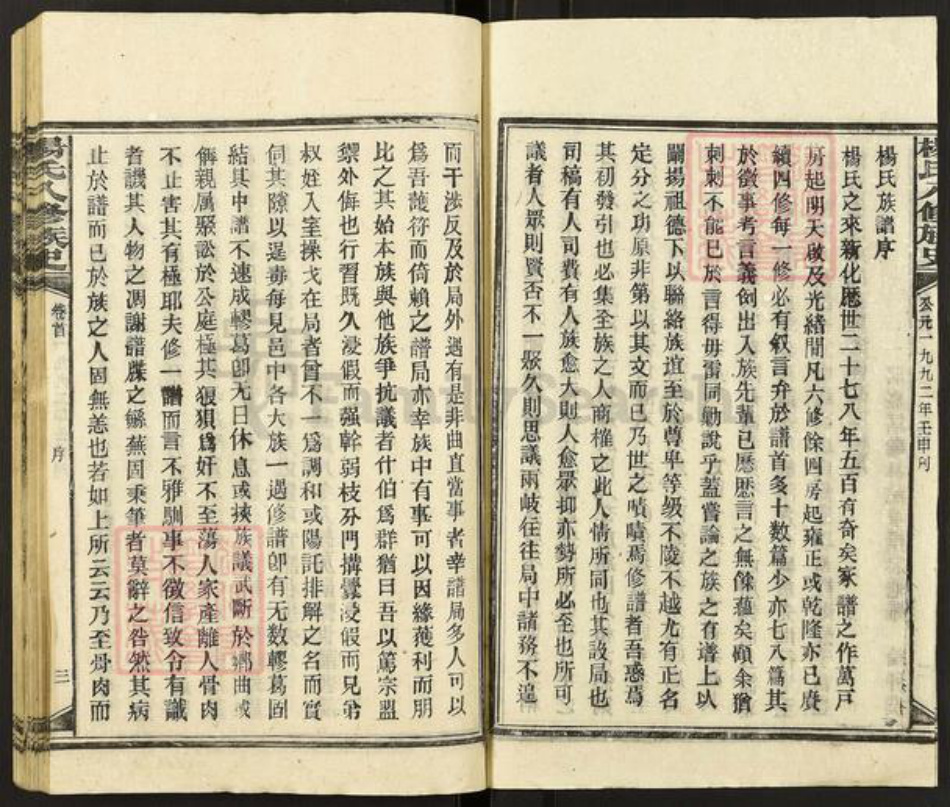 楊氏八修族史
公元一九九二年壬申冈
楊氏族譜序
楊氏之來新化歷世二十七八年五百有奇矣家譜之作萬戸
房起明天啟及光緒間凡六修餘四房起雍正或乾隆亦已賡
續四修每一修必有叙言弁於譜首多十數篇少亦七八篇其
於徵事考言義例出入族先輩已歷歷言之無餘蘊矣顧余猶
刺刺不能已於言得毋雷同勦說乎蓋嘗論之族之有谱上以
闡揚祖德下以聯絡族誼至於尊卑等級不陵不越尤有正名
定分之功原非第以其文而已乃世之嘖嘖焉修譜者吾惑焉
其初發引也必集全族之人商榷之此人情所同也其設局也
司稿有人司費有人族愈大則人愈眾抑亦勢所必至也所可
議者人眾則賢否不一聚久則思議兩岐往往局中諸務不遑
而干涉反及於局外遇有是非曲直當事者幸譜局多人可以
爲吾護符而倚賴之譜局亦幸族中有事可以因緣蒦利而朋
比之其始本族與他族爭抗議者什伯爲群猶曰吾以篤宗盟
禦外侮也行習既久浸假而强幹弱枝分門搆釁浸假而兄弟
叔姪入室操戈在局者曾不一爲調和或陽託排解之名而實
伺其隙以逞毒每見邑中各大族一遇修譜卽有无数轇葛固
結其中譜不速成轇葛卽无日休息或挾族議武斷於鄉曲或
嗾親属聚訟於公庭極其狼狽爲奸不至蕩人家產離人骨肉
不止害其有極耶夫修一譜而言不雅馴事不徵信致令有識
者譏其人物之凋謝譜牒之蕪因秉筆者莫辭之咎然其病
止於譜而已於族之人固無恙也若如上所云云乃至骨肉而
楊氏八修族史
卷首
序
三